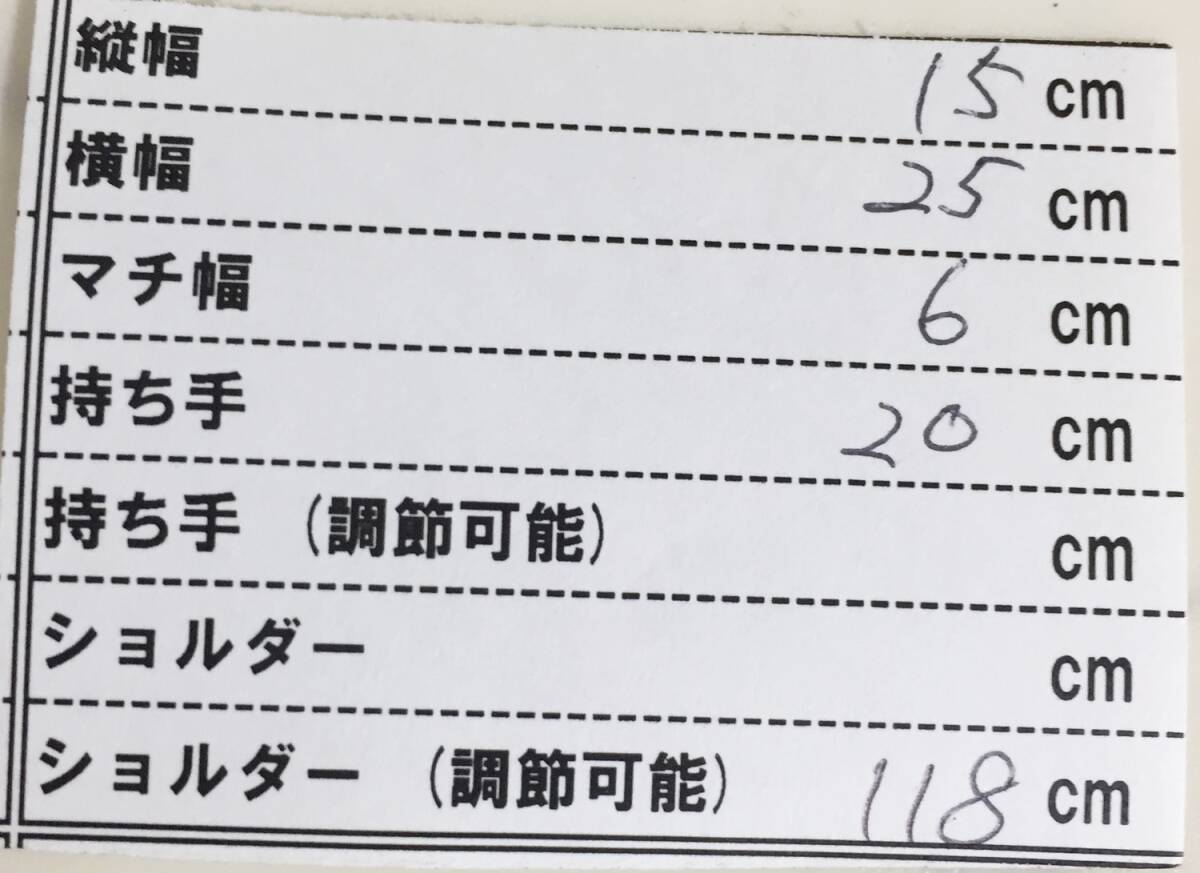 縦幅 15 cm
横幅 25 cm
マチ幅 6 cm
持ち手 20 cm
持ち手 (調節可能) cm
ショルダー cm
ショルダー (調節可能) 118 cm